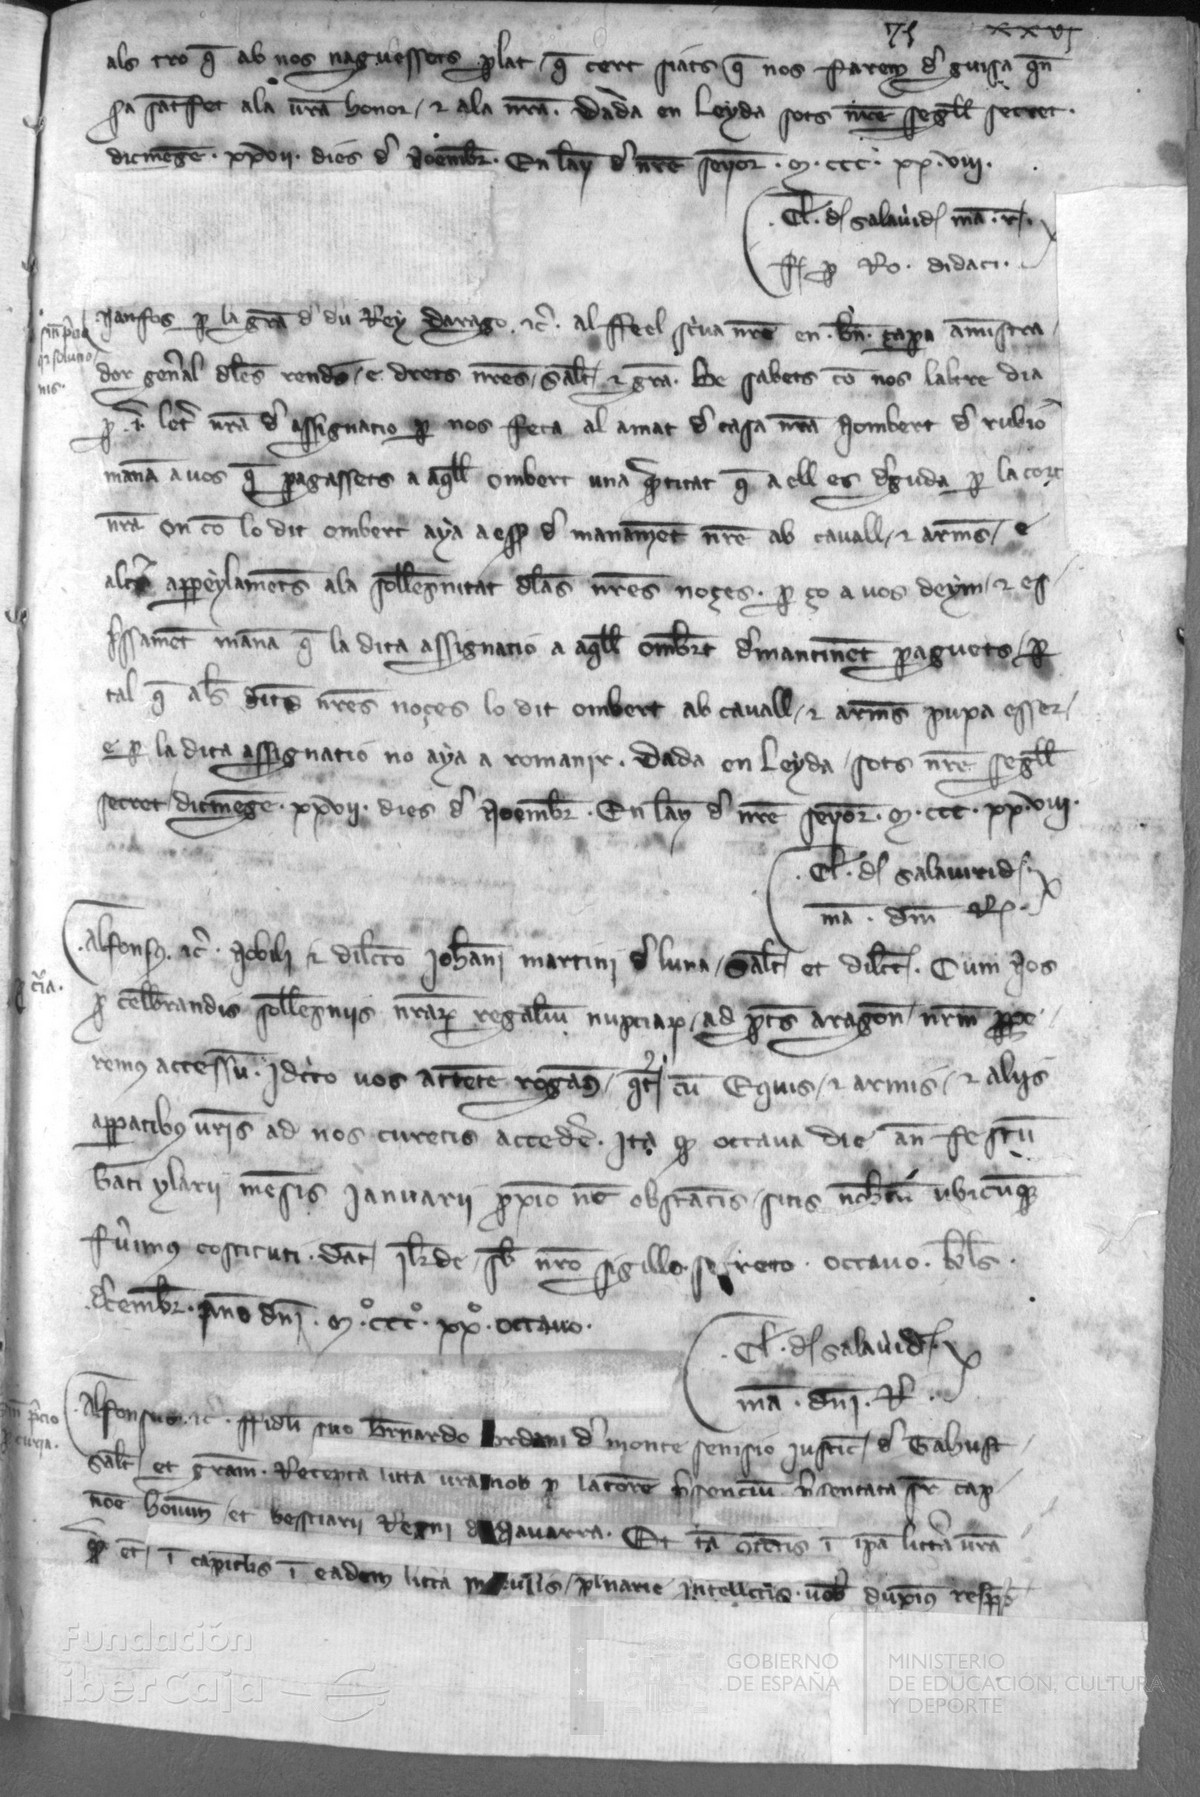 75 xxvj
als tro q̄ ab nos naguessets ꝑlat / q̄ cert siats q̄ nos farem d' guisa qn̄
sa satffet ala ūra honor / ⁊ ala nr̄a. Dada en Leyda sots nr̄e segȷll secret.
dicmēge. xxvii. dies d' Noembr̄. En lay d' nr̄e seyor. M. ccc. xx. viii.
Cl'. d' Salauid' mā. r.
fc̄ ꝑ Ro. didaci.
Nanfos ꝑ la grā d' du Rey darago. ⁊c̄. al ffeel scriva nr̄e en. bn̄. çapa amistra
dor gen̄al dl̄es rendes / e drets nr̄es / Salt̄ ⁊ grā. Be sabets cō nos laltre dia
ꝑ. i. let̄ nr̄a d' assignatio ꝑ nos feta al amat d' casa nr̄a Nombert d' rubio
manā a vos q̄ pagassets a aq̄ll ombert una q̄titat q̄ a ell es d'guda ꝑ la cort
nr̄a on cō lo dit ombert aya a esser d' manamēt nr̄e ab cavall / ⁊ arm̄s / e
altr̄s appeylamēts ala sollēpnitat dl̄as nr̄es noçes. ꝑ ço a vos deym / ⁊ es
p̄ssamēt manā q̄ la dita assignatio a aq̄ll ombert d'mantinēt paguets / ꝑ
tal q̄ als dits nr̄es noçes lo dit ombert ab cavall / ⁊ arm̄s pupa esser /
e ꝑ la dita assignatio no aya a romanir. Dada en Leyda / sots nr̄e segȷll
secret / dicmēge. xxvii. dies d' Noembr̄. En lay d' nr̄e seyor. M. ccc. xx. viii.
Cl'. d' Salauirid'.
mā. dn̄i R̄.
Alfonsus. ⁊c̄. Nobili ⁊ dil̄cto Joh̄ani martini d' luna / Salt̄ et dil̄ct. Cum Nos
ꝑ celb̄randis soll̄epniis nr̄arꝝ regaliū nupciarꝝ / ad ꝑtes aragon̄ nr̄m ꝓpe
remꝰ accessū. Idc̄co vos attēte rogam̄ / qt̄ cū Equis / ⁊ armis / ⁊ alijs
apparatibꝰ vr̄is ad nos curetis acced'e. Ita q̄ octava die an̄ festū
bāti ylarii mēsis Januarii ꝓxio nō obstātis / sitis nobcū ubicūqꝫ
fūimꝰ costituti. Dat̄ Il'de / sb̄ nr̄o sigillo secreto. octavo. kl̄s.
d'cembr̄. Ano dn̄i. Mº. cccº. xxº. octavo.
Cl'. d' Salauid'.
mā. dn̄i. R̄.
Alfonsus. ⁊c̄. ffideli suo b̄rnardo Jordani d' monte senisio justic̄ / d' Gahust
Salt̄ et grām. Recepta litt̄a vr̄a nob̄ ꝑ latorē p̄senciū p̄sentata sr̄ cap
nōe hoīum / et bestiarii Regni d' Navarra. Et tā ɔtētis i ip̄a litt̄a vr̄a
q̄ et̄ / ī capitlis ī eadem litt̄a / plenarie intell̄ctis. vob̄ duximꝰ resp̄
Fundación
iberCaja
GOBIERNO
DE ESPAÑA
MINISTERIO
DE EDUCACIÓN, CULTURA
Y DEPORTE